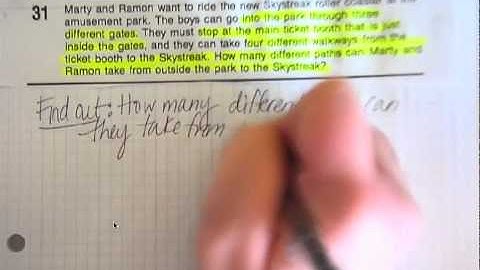 31 Marty and Ramon want to ride the new Skystreak roller coaster at the
amusement park. The boys can go into the park through three
different gates. They must stop at the main ticket booth that is just
inside the gates, and they can take four different walkways from the
ticket booth to the Skystreak. How many different paths can Marty and
Ramon take from outside the park to the Skystreak?
Find out: How many different can
they take from